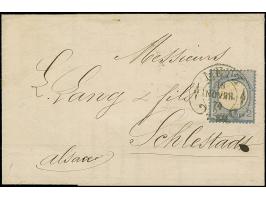 Messieurs
L. Lang & fils
Schlestadt
Alsace